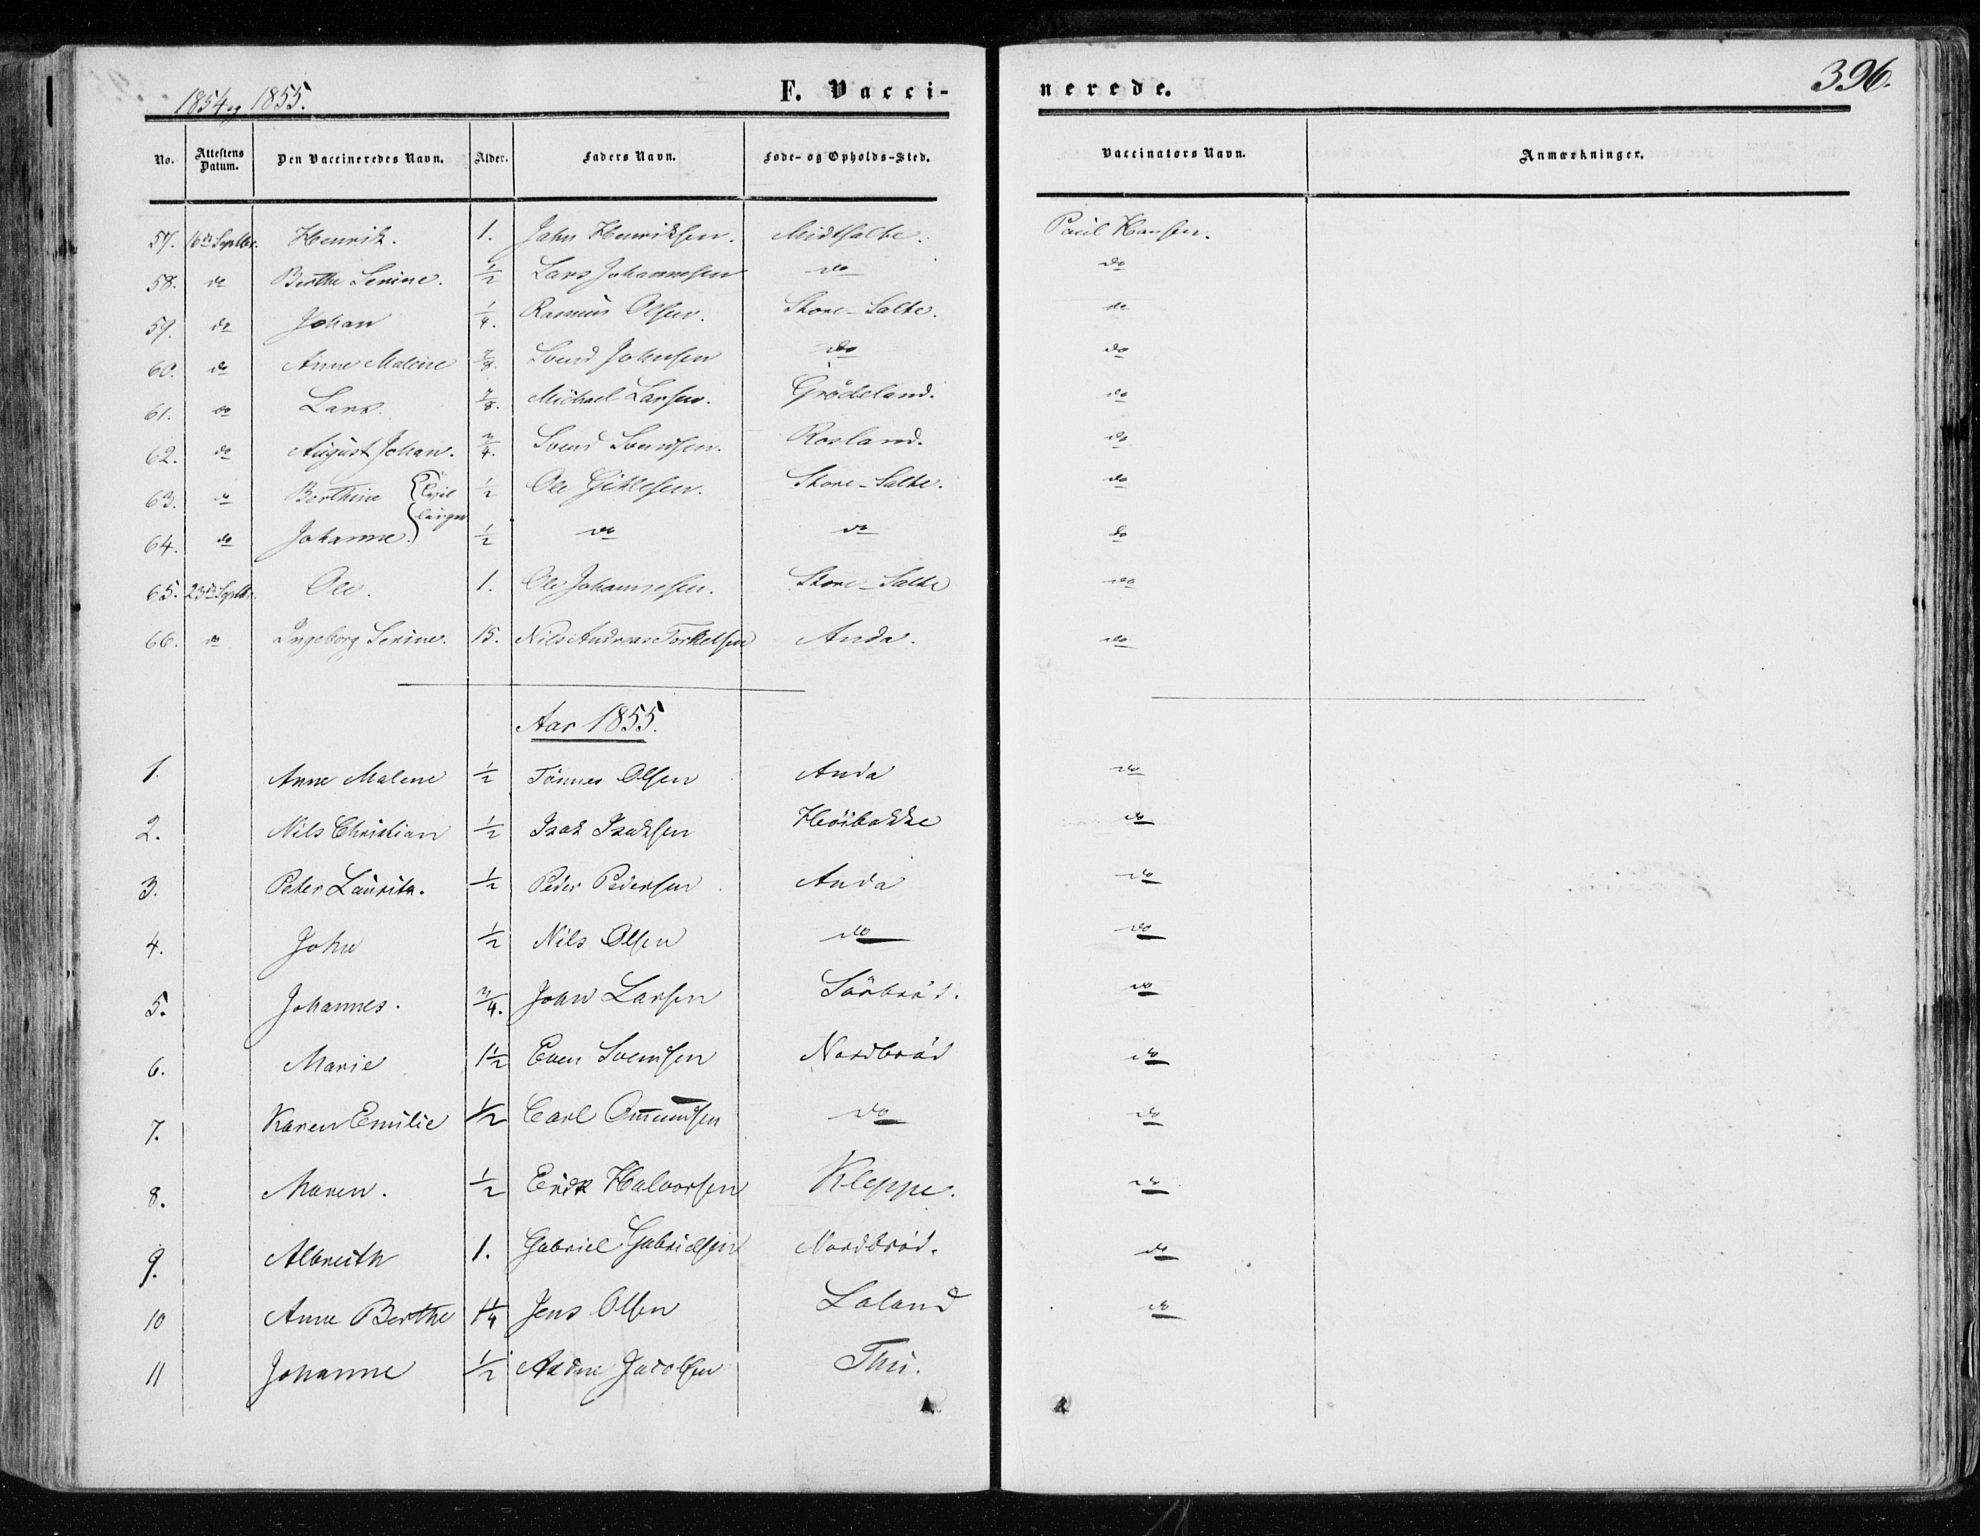 1854 og 1855. F. Vacci- nerede. 396.
No. Attestens Datum. Den Vaccineredes Navn. Alder. Faders Navn. Føde- og Opholds-Sted. Vaccinators Navn. Anmærkninger.
57. 16de Septbr. Henrik. 1. John Henriksen. Midtsalte. Paul Hansen.
58. do Berthe Serine. 1/2 Lars Johannesen do do
59. do Johan 1/4. Rasmus Olsen. Store-Salte. do
60. do Anne Malene 7/8. Svend Johnsen do do
61. do Lars. 7/8. Michael Larsen. Grödeland. do
62. do August Johan. 3/4. Svend Svendsen. Rosland. do
63. do Berthine { Tvil 1/2 Ole Gitlesen. Store-Salte. do
64. do Johanne. } linger 1/2 do do do
65. 23de Septbr. Ole. 1. Ole Johannesen. Store-Salte do
66. do Ingeborg Serine. 15. Nils Andreas Torkelsen Anda. do
Aar 1855.
1. Anne Malene 1/2 Tönnes Olsen Anda do
2. Nils Christian 1/2 Isak Isaksen Höibakke do
3. Peter Lauritz. 1/2 Peder Pedersen Anda do
4. John 1/2 Nils Olsen do do
5. Johannes. 3/4. John Larsen Sörbröd. do
6. Marie 1 1/2 Even Svendsen Nordbröd do
7. Karen Emilie 1/2 Carl Ommundsen do do
8. Maren. 1/2 Erik Halvorsen Kleppe. do
9. Albreith 1. Gabriel Gabrielsen Nordbröd. do
10 Anne Berthe 1 1/4 Jens Olsen Laland do
11 Johanne 1/2 Aadne Jacobsen Thu.